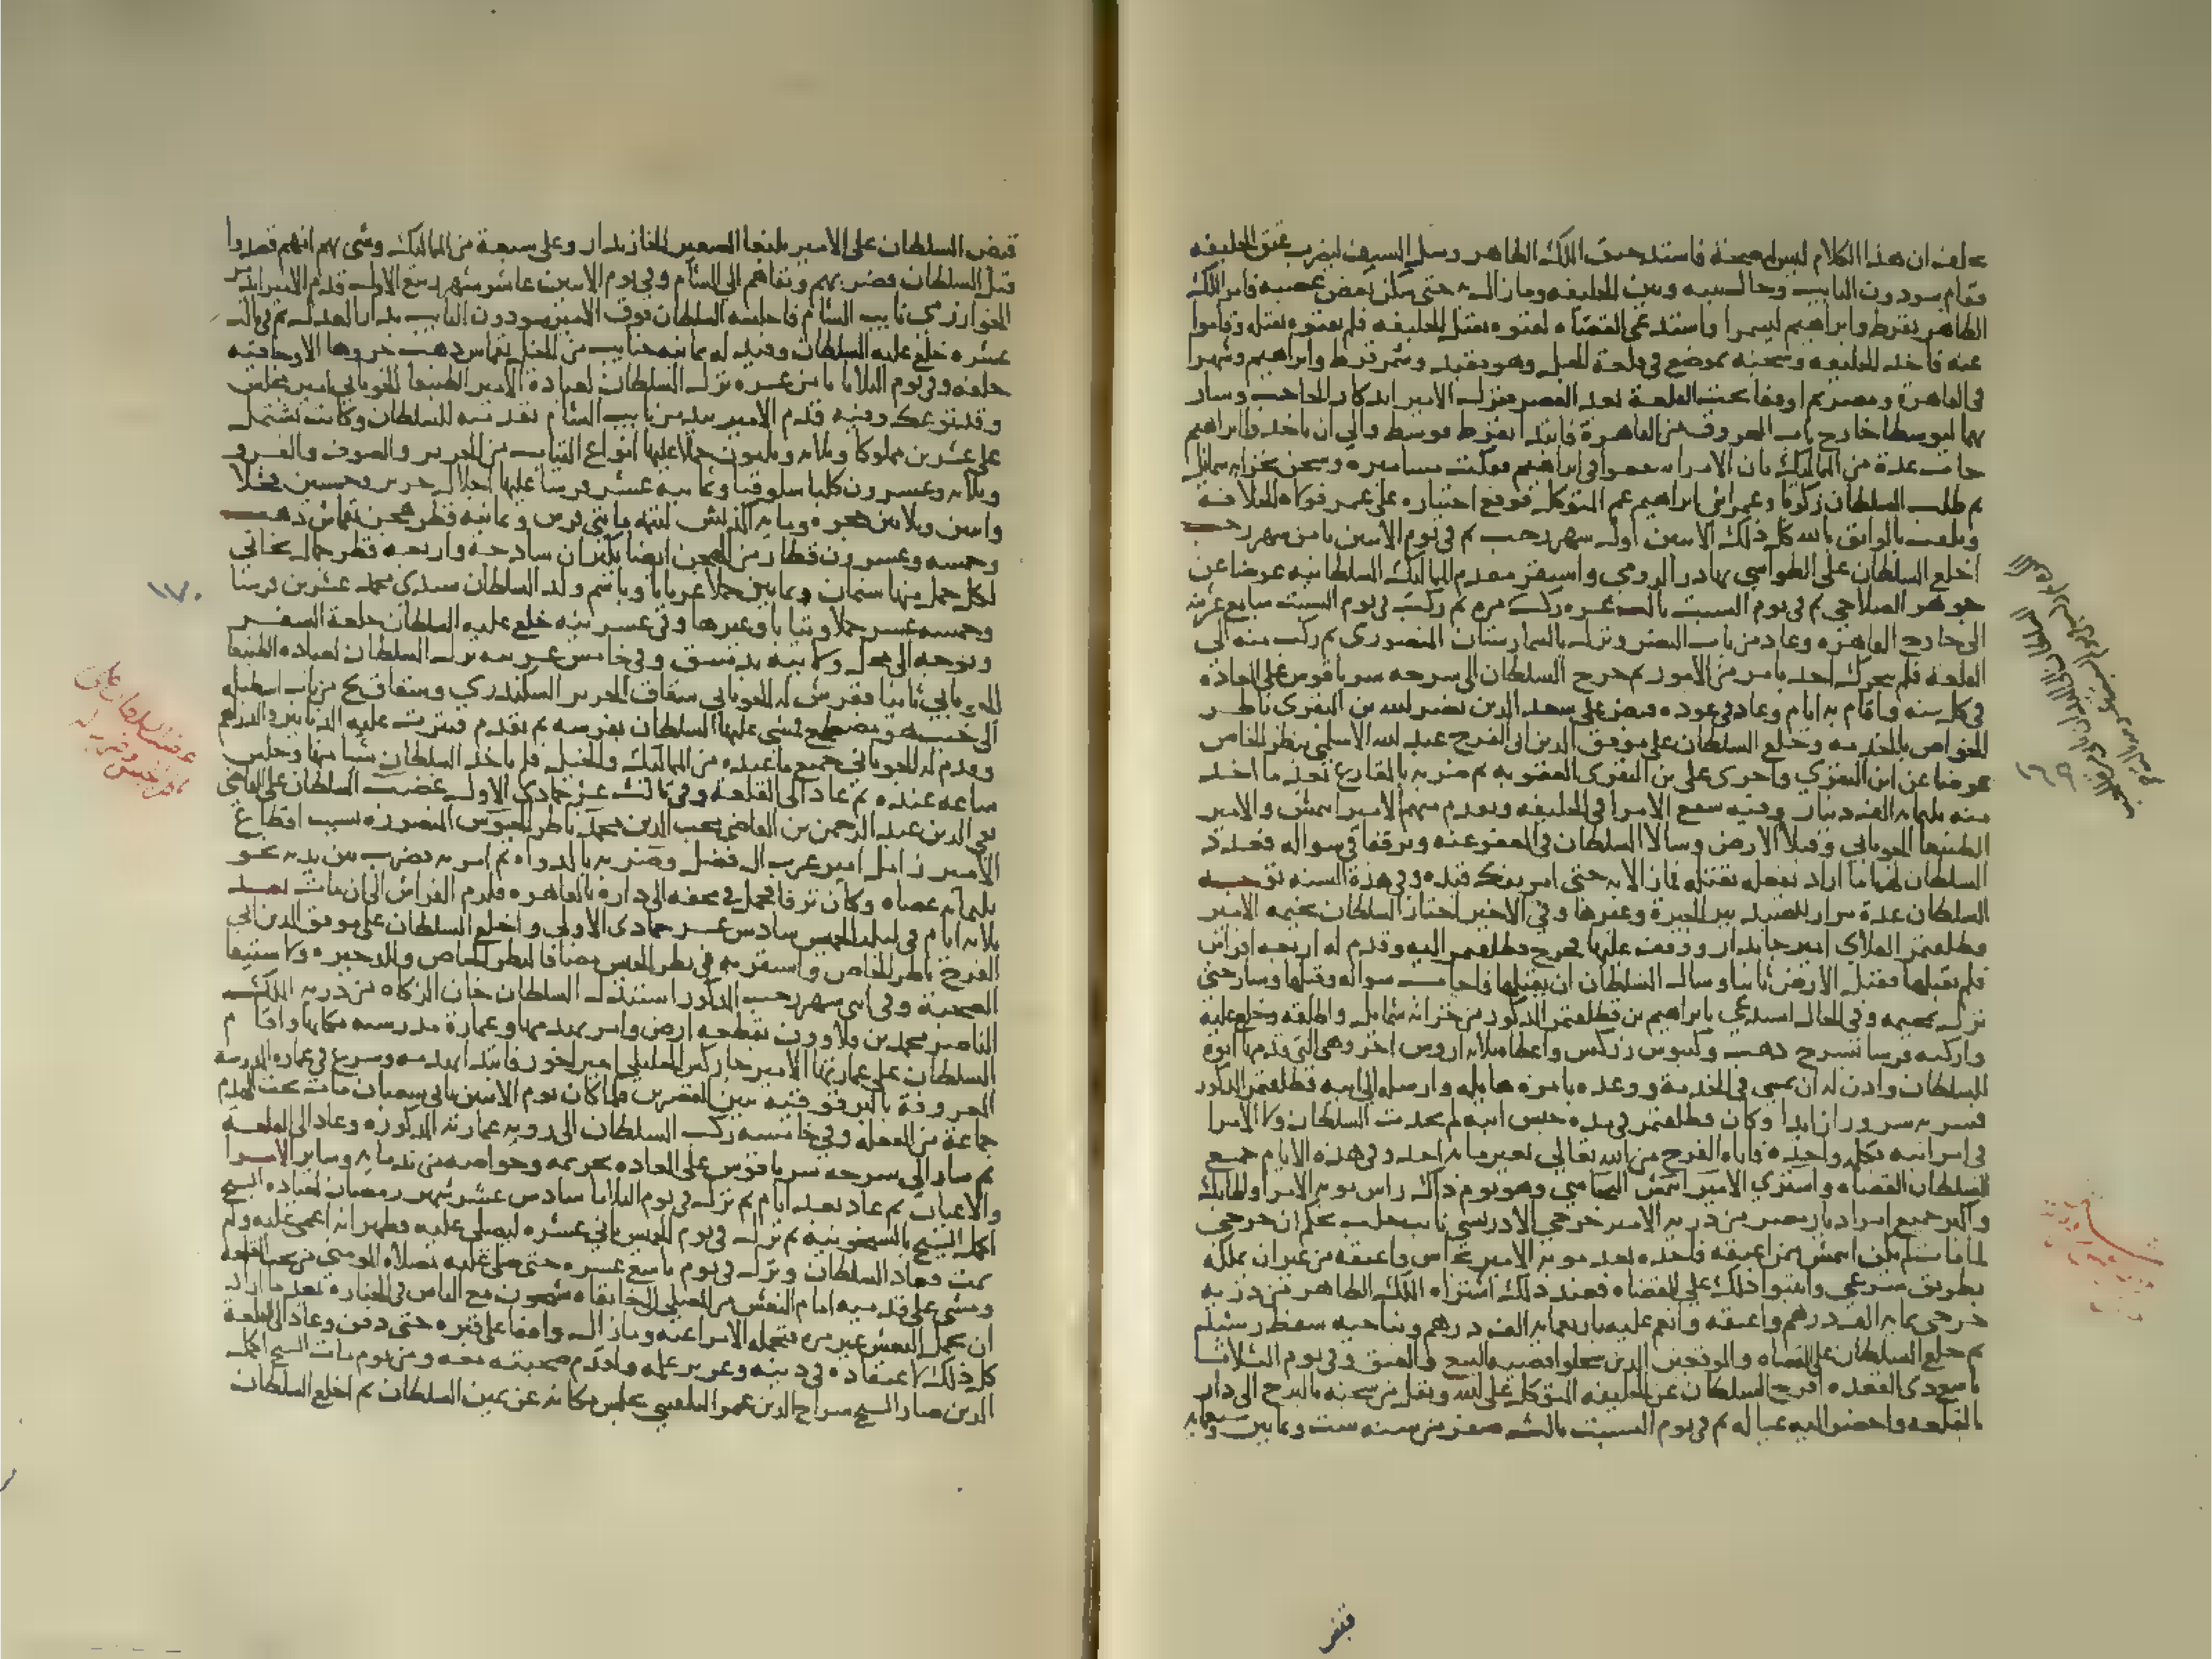 حلف ان هذا الكلام ليس له صحة فاشتد حنق الملك الظاهر وسل السيف ليضرب عنق الخليفة
فقام سودون النايب وحال بينه وبين الخليفه ومازال به حتى سكن بعض غضبه فامر الملك
الظاهر بقرط وابراهيم ليسمرا واستدعى القضاه ليفتوه بقتل الخليفه فلم يفتوه بقتله وقاموا
عنه فاخذ الخليفه وسجنه بموضع في قلعة الجبل وهو مقيد وسمر قرط وابراهيم وشهرا
في القاهرة ومصر ثم اوقفا تحت القلعة بعد العصر فنزل الامير ايدكار الحاجب وسار
بهما ليوسطا خارج باب المحروق من القاهرة فابتدا بقرط فوسط والى ان ياخذوا ابراهيم
جات عدة من المماليك بان الامرا شفعوا في ابراهيم ففكت مساميره وسجن بخزانة شمايل
ثم طلب السلطان زكريا وعمر ابني ابراهيم عم المتوكل فوقع اختياره على عمر فولاه الخلافة
ولقب بالواثق بالله كل ذلك الاثنين اول شهر رجب ثم في يوم الاثنين ثامن شهر رجب
اخلع السلطان على الطواشي بهادر الرومي واستقر مقدم المماليك السلطانيه عوضا عن
جوهر الصلاحي ثم في يوم السبت ثالث عشره ركب
الى خارج القاهره وعاد من باب النصر ونزل بالبيمارستان المنصوري ثم ركب منه الى
القلعة فلم يتحرك احد بامر من الامور ثم خرج السلطان الى سرحه سرياقوس على العاده
في كل سنه واقام به ايام وعاد في عوده قبض على سعد الدين نصر الله بن البقري ناظر
الخواص بالخدمه وخلع السلطان على موفق الدين ابي الفرج عبد الله الاسلمي بنظر الخاص
عوضا عن ابن البقري واجرى على بن البقري العقوبه ثم ضربه بالمقارع بعد ما اخذ
منه ثلثمايه الف دينار وفيه شفع الامرا في الخليفه وتقدم منهم الامير ايتمش والامير
الطنبغا الجوباني وقبلا الارض وسالا السلطان في العفو عنه وترفقا في سواله فعدد
السلطان لهما ما اراد يفعله بقتله فمازالا به حتى امر بفك قيده وفي هذه السنه توجه
السلطان عدة مرار للصيد ببر الجيزة وغيرها وفي الاخير اجتاز السلطان بخيمه الامير
قطلقتمر العلاي امير جاندار ووقف عليها فخرج قطلقتمر اليه وقدم له اربعه افراس
فلم يقبلها فقبل الارض ثانيا وسال السلطان ان يقبلها فاجاب سواله وقبلها وسار حتى
نزل بمخيمه وفي الحال استدعى بابراهيم بن قطلقتمر المذكور من خزانة شمايل واطلقه وخلع عليه
واركبه فرسا بسرج ذهب وكنبوش زركش واعطاه ثلاثه اروس اخر وهي التي قدمها ابوه
للسلطان واذن له ان يمشي في الخدمة ووعده بامره هايله وارسله الى ابيه قطلقتمر المذكور
فسر به سرورا زايدا وكان قطلقتمر في مده حبس ابنه لم يحدث السلطان ولا الامرا
في امر ابنه بكلمه واحده فاتاه الفرج من الله تعالى بغير ما به احد وفي هذه الايام جمع
السلطان القضاه واشترى الامير ايتمش البجاسي وهو يوم ذاك راس نوبة الامرا واتابك
واكبر جميع امراء ديار مصر من ذريه الامير جرجي الادريسي نايب حلب بحكم ان جرجي
لما مات لم يكن ايتمش ممن اعتقه فاخذه بعد موته الامير بجاس واعتقه من غير ان يملكه
بطريق شرعي واثبتوا ذلك على القضاه فعند ذلك اشتراه الملك الظاهر من ذريه
جرجي بمايه الف درهم واعتقه وانعم عليه باربعمايه الف درهم وبناحيه سفط رشيد
ثم خلع السلطان على القضاه والموقعين الذين سجلوا قضيه البيع والعتق وفي يوم الثلاثا
تاسع ذي القعده افرج السلطان عن الخليفه المتوكل على الله ونقل من سجنه بالبرج الى دار
بالقلعه واحضر اليه عياله ثم في يوم السبت ثالث صفر من سنه ست وثمانين وسبعمايه
١٦٩
فقبض
قبض السلطان على الامير يلبغا الصغير الخازندار وعلى سبعة من المماليك وشى بهم انهم قصدوا
قتل السلطان فضربهم ونفاهم الى الشام وفي يوم الاثنين عاشر شهر ربيع الاول قدم الامير بيدمر
الخوارزمي نايب الشام فاجلسه السلطان فوق الامير سودون النايب بدار العدل ثم في ثالث
عشره خلع عليه السلطان وقيد له ثمانيه جنايب من الخيل بقماش ذهب
وفي يوم الثلاثا ثامن عشره نزل السلطان لعيادة الامير الطنبغا الجوباني امير مجلس
وقد توعك وفيه قدم الامير بيدمر نايب الشام تقدمته للسلطان وكانت تشتمل
على عشرين مملوكا وثلاثه وثلاثون جملا عليها انواع الثياب من الحرير والصوف والفرو
وثلاثه وعشرون كلبا سلوقيا وثمانيه عشر فرسا عليها اجلال حرير وخمسين فحلا
وخمسه وعشرون قطار من الهجن ايضا بكيران ساذجة واربعه قطر جمال بخاتي
لكل جمل منها سنمان وثمانين جملا عربانا وباسم ولد السلطان سيدي محمد عشرين فرسا
وخمسه عشر جملا وثيابا وغيرها وفي عشرينه خلع عليه السلطان خلعة السفر
وتوجه الى محل ولايته بدمشق وفي خامس عشرينه نزل السلطان لعياده الطنبغا
الجوباني ثانيا ففرش له الجوباني شقاق الحرير السكندري وشقاق نخ من باب اسطبله
الى حيث هو مضطجع فمشى عليها السلطان بفرسه ثم بقدم فنثرت عليه الدنانير والدراهم
وقدم له الجوباني جميع ما عنده من المماليك والخيل فلم ياخذ السلطان شيا منها وجلس
ساعه عنده ثم عاد الى القلعة وفي ثالث عشر جمادى الاول غضب السلطان على القاضي
تقي الدين عبد الرحمن بن القاضي محب الدين محمد ناظر الجيوش المنصوره بسبب اقطاع
الامير زامل امير عرب ال فضل وضربه بالدواه ثم امر به فضرب بين يديه نحو
ثلثمايه عصاه وكان ترفا فحمل في محفه الى داره بالقاهره فلزم الفراش الى ان مات بعد
ثلاثه ايام في ليله الخميس سادس عشر جمادى الاولى واخلع السلطان على موفق الدين ابي
الفرج ناظر الخاص واستقر به في نظر الجيش مضافا لنظر الخاص والذخيره والاستيفا
الصحبة وفي اثني شهر رجب المذكور استبدل السلطان خان الزكاه من ذريه الملك
الناصر محمد بن قلاوون بقطعه ارض وامر بهدمها وعمارة مدرسه مكانها واقام
السلطان على عمارتها الامير جاركس الخليلي امير اخور وابتدا بهدمه وشرع في عماره المدرسه
المعروفة بالبرقوقيه بين القصرين فلما كان يوم الاثنين ثاني شعبان مات تحت الهدم
جماعة من الفعله وفي خامسه ركب السلطان الى رويه عمارته المذكوره وعاد الى القلعة
ثم سار الى سرحه سرياقوس على العاده بحريمه وخواصه من ندمايه وساير الامرا
والاعيان ثم عاد بعد ايام ثم نزل في يوم الثلاثا سادس عشر شهر رمضان لعياده الشيخ
اكمل الشيخ بالشيخونيه ثم نزل في يوم الخميس ثاني عشره ليصلي عليه فظهر انه اغمي عليه ولم
يمت فعاد السلطان ونزل في يوم تاسع عشره حتى صلى عليه بمصلاه المومني من تحت القلعه
ومشى على قدميه امام النعش من المصلى الى خانقاه شيخون مع الناس في الجنازه بعد ما اراد
ان يحمل النعش غير مره فتحمله الامرا عنه ومازال واقفا على قبره حتى دفن وعاد الى القلعة
كل ذلك لاعتقاده في دينه وغزير علمه ولقدم صحبته معه ومن يوم مات الشيخ اكمل
الدين صار الشيخ سراج الدين عمر البلقيني يجلس مكانه عن يمين السلطان ثم اخلع السلطان
١٧٠
غضب السلطان على
ناظر الجيش وضربه له